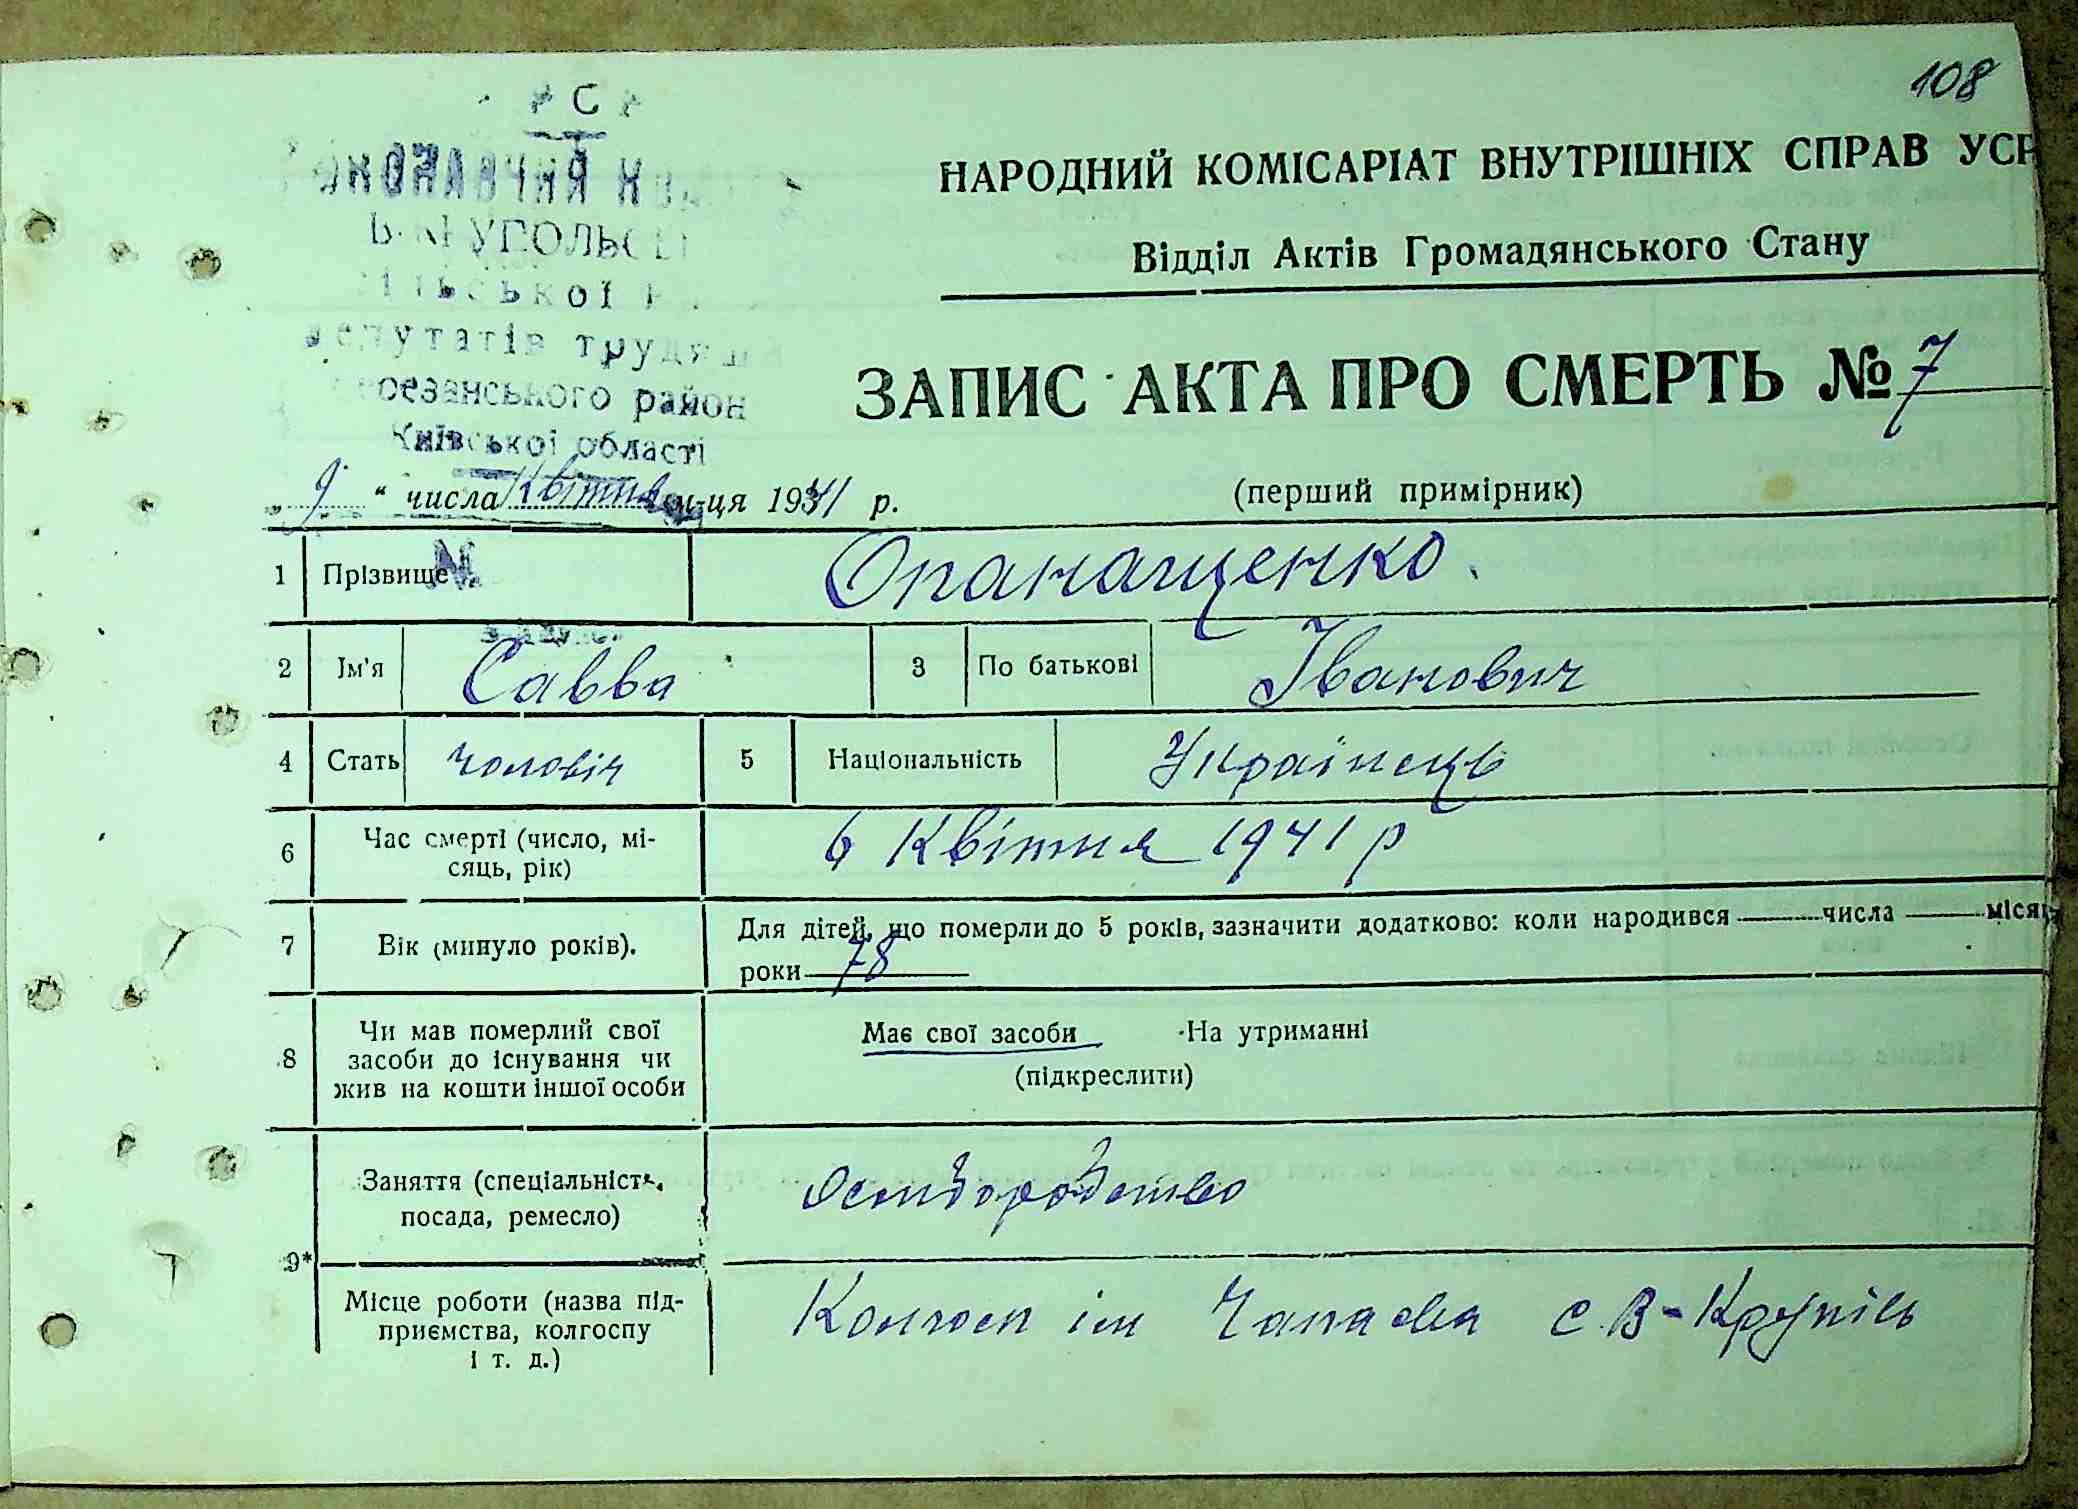 108
НАРОДНИЙ КОМІСАРІАТ ВНУТРІШНІХ СПРАВ УСР
Відділ Актів Громадянського Стану
депутатів трудящ
району
Київської області
ЗАПИС АКТА ПРО СМЕРТЬ № 7
„ 9 “ числа Квітня м-ця 1941 р.
(перший примірник)
1 Прізвище Опанащенко.
2 Ім'я Савва 3 По батькові Іванович
4 Стать чоловіч 5 Національність Українець
6 Час смерті (число, мі-
сяць, рік) 6 Квітня 1941 р
7 Вік (минуло років). Для дітей, що померли до 5 років, зазначити додатково: коли народився числа місяц
роки 78
8 Чи мав померлий свої
засоби до існування чи
жив на кошти іншої особи
Має свої засоби На утриманні
(підкреслити)
9* Заняття (спеціальність,
посада, ремесло)
Місце роботи (назва під-
приємства, колгоспу
і т. д.)
Колгосп ім Чапаєва с. В-Крупіль